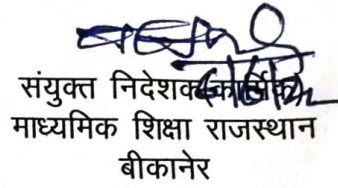 संयुक्त निदेशक
माध्यमिक शिक्षा राजस्थान
बीकानेर